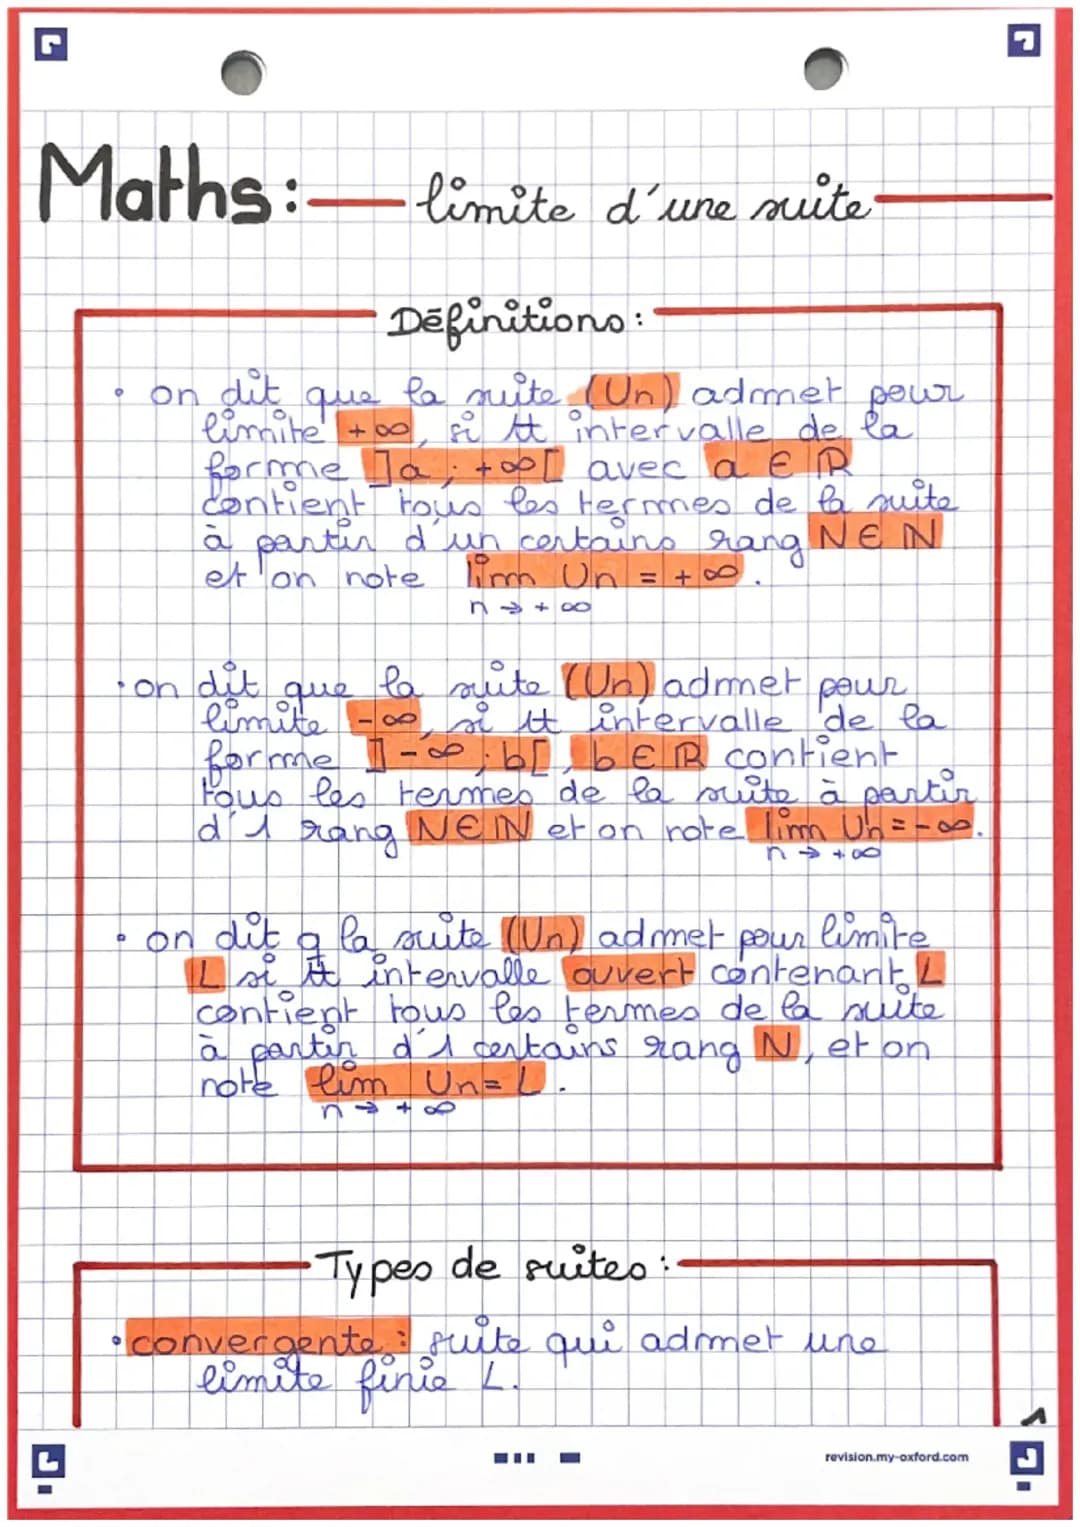 Maths: limite d'une suite
Définitions:
• on dit que la suite (Un) admet pour
limite +∞, si tt intervalle de la
forme ]a ; +∞[ avec a ∈ ℝ
contient tous les termes de la suite
à partir d'un certains rang N ∈ ℕ
et on note lim Un = +∞.
n → + ∞
• on dit que la suite (Un) admet pour
limite -∞, si tt intervalle de la
forme ]-∞ ; b[, b ∈ ℝ contient
tous les termes de la suite à partir
d'1 rang N ∈ ℕ et on note lim Un = -∞.
n → +∞
• on dit q la suite (Un) admet pour limite
L si tt intervalle ouvert contenant L
contient tous les termes de la suite
à partir d'1 certains rang N, et on
note lim Un = L.
n → + ∞
Types de suites:
• convergente : suite qui admet une
limite finie L.
1
revision.my-oxford.com